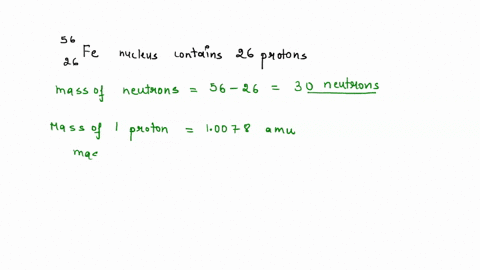 ⁵⁶₂₆Fe nucleus contains 26 protons
mass of neutrons = 56 - 26 = 30 neutrons
Mass of 1 proton = 1.0078 amu
mas